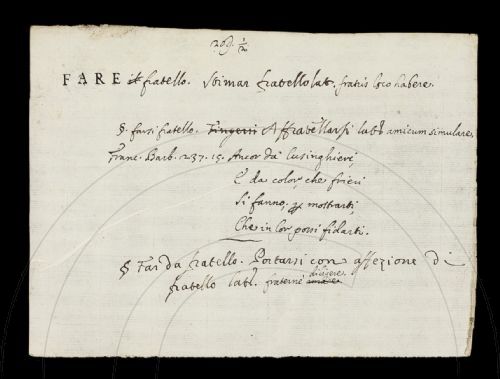 298. 1/2
FARE il fratello. Stimar fratello lat. fratris loco habere.
§. farsi fratello. Fingersi Affratellarsi lat. amicum simulare.
Franc. Barb. 237. 15. Ancor da lusinghieri,
E da color, che frieri
Si fanno, mostrarti,
Che in lor possi fidarti.
§ Far da fratello. Portarsi con affezione di
diligere
fratello lat. fraterne amare